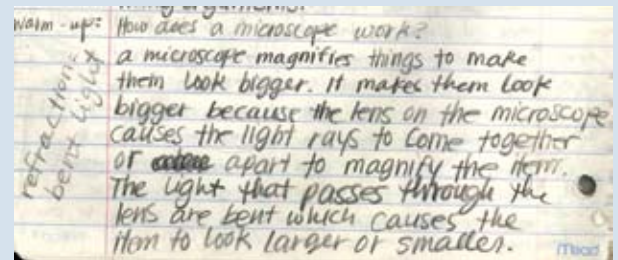 warm-up: How does a microscope work?
a microscope magnifies things to make
them look bigger. It makes them look
bigger because the lens on the microscope
causes the light rays to come together
or apart to magnify the item.
The light that passes through the
lens are bent which causes the
item to look larger or smaller.
refraction:
bent light
Mead